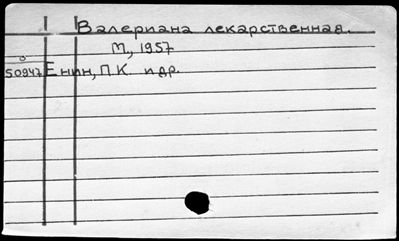 Валериана лекарственная.
М., 1957
50947 Енин, П.К. и др.